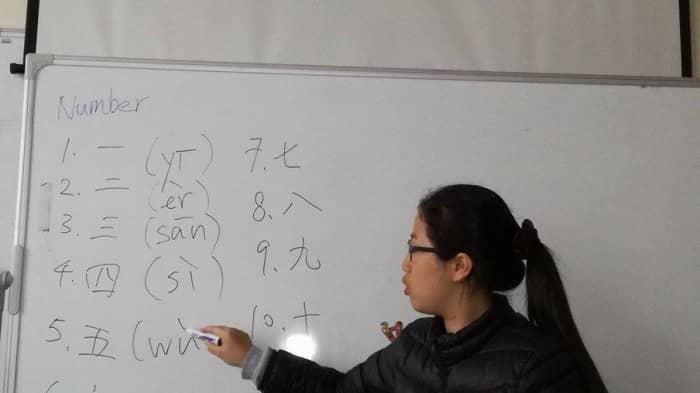 Number
1. 一 (yī)
2. 二 (èr)
3. 三 (sān)
4. 四 (sì)
5. 五 (wù
7. 七
8. 八
9. 九
10. 十